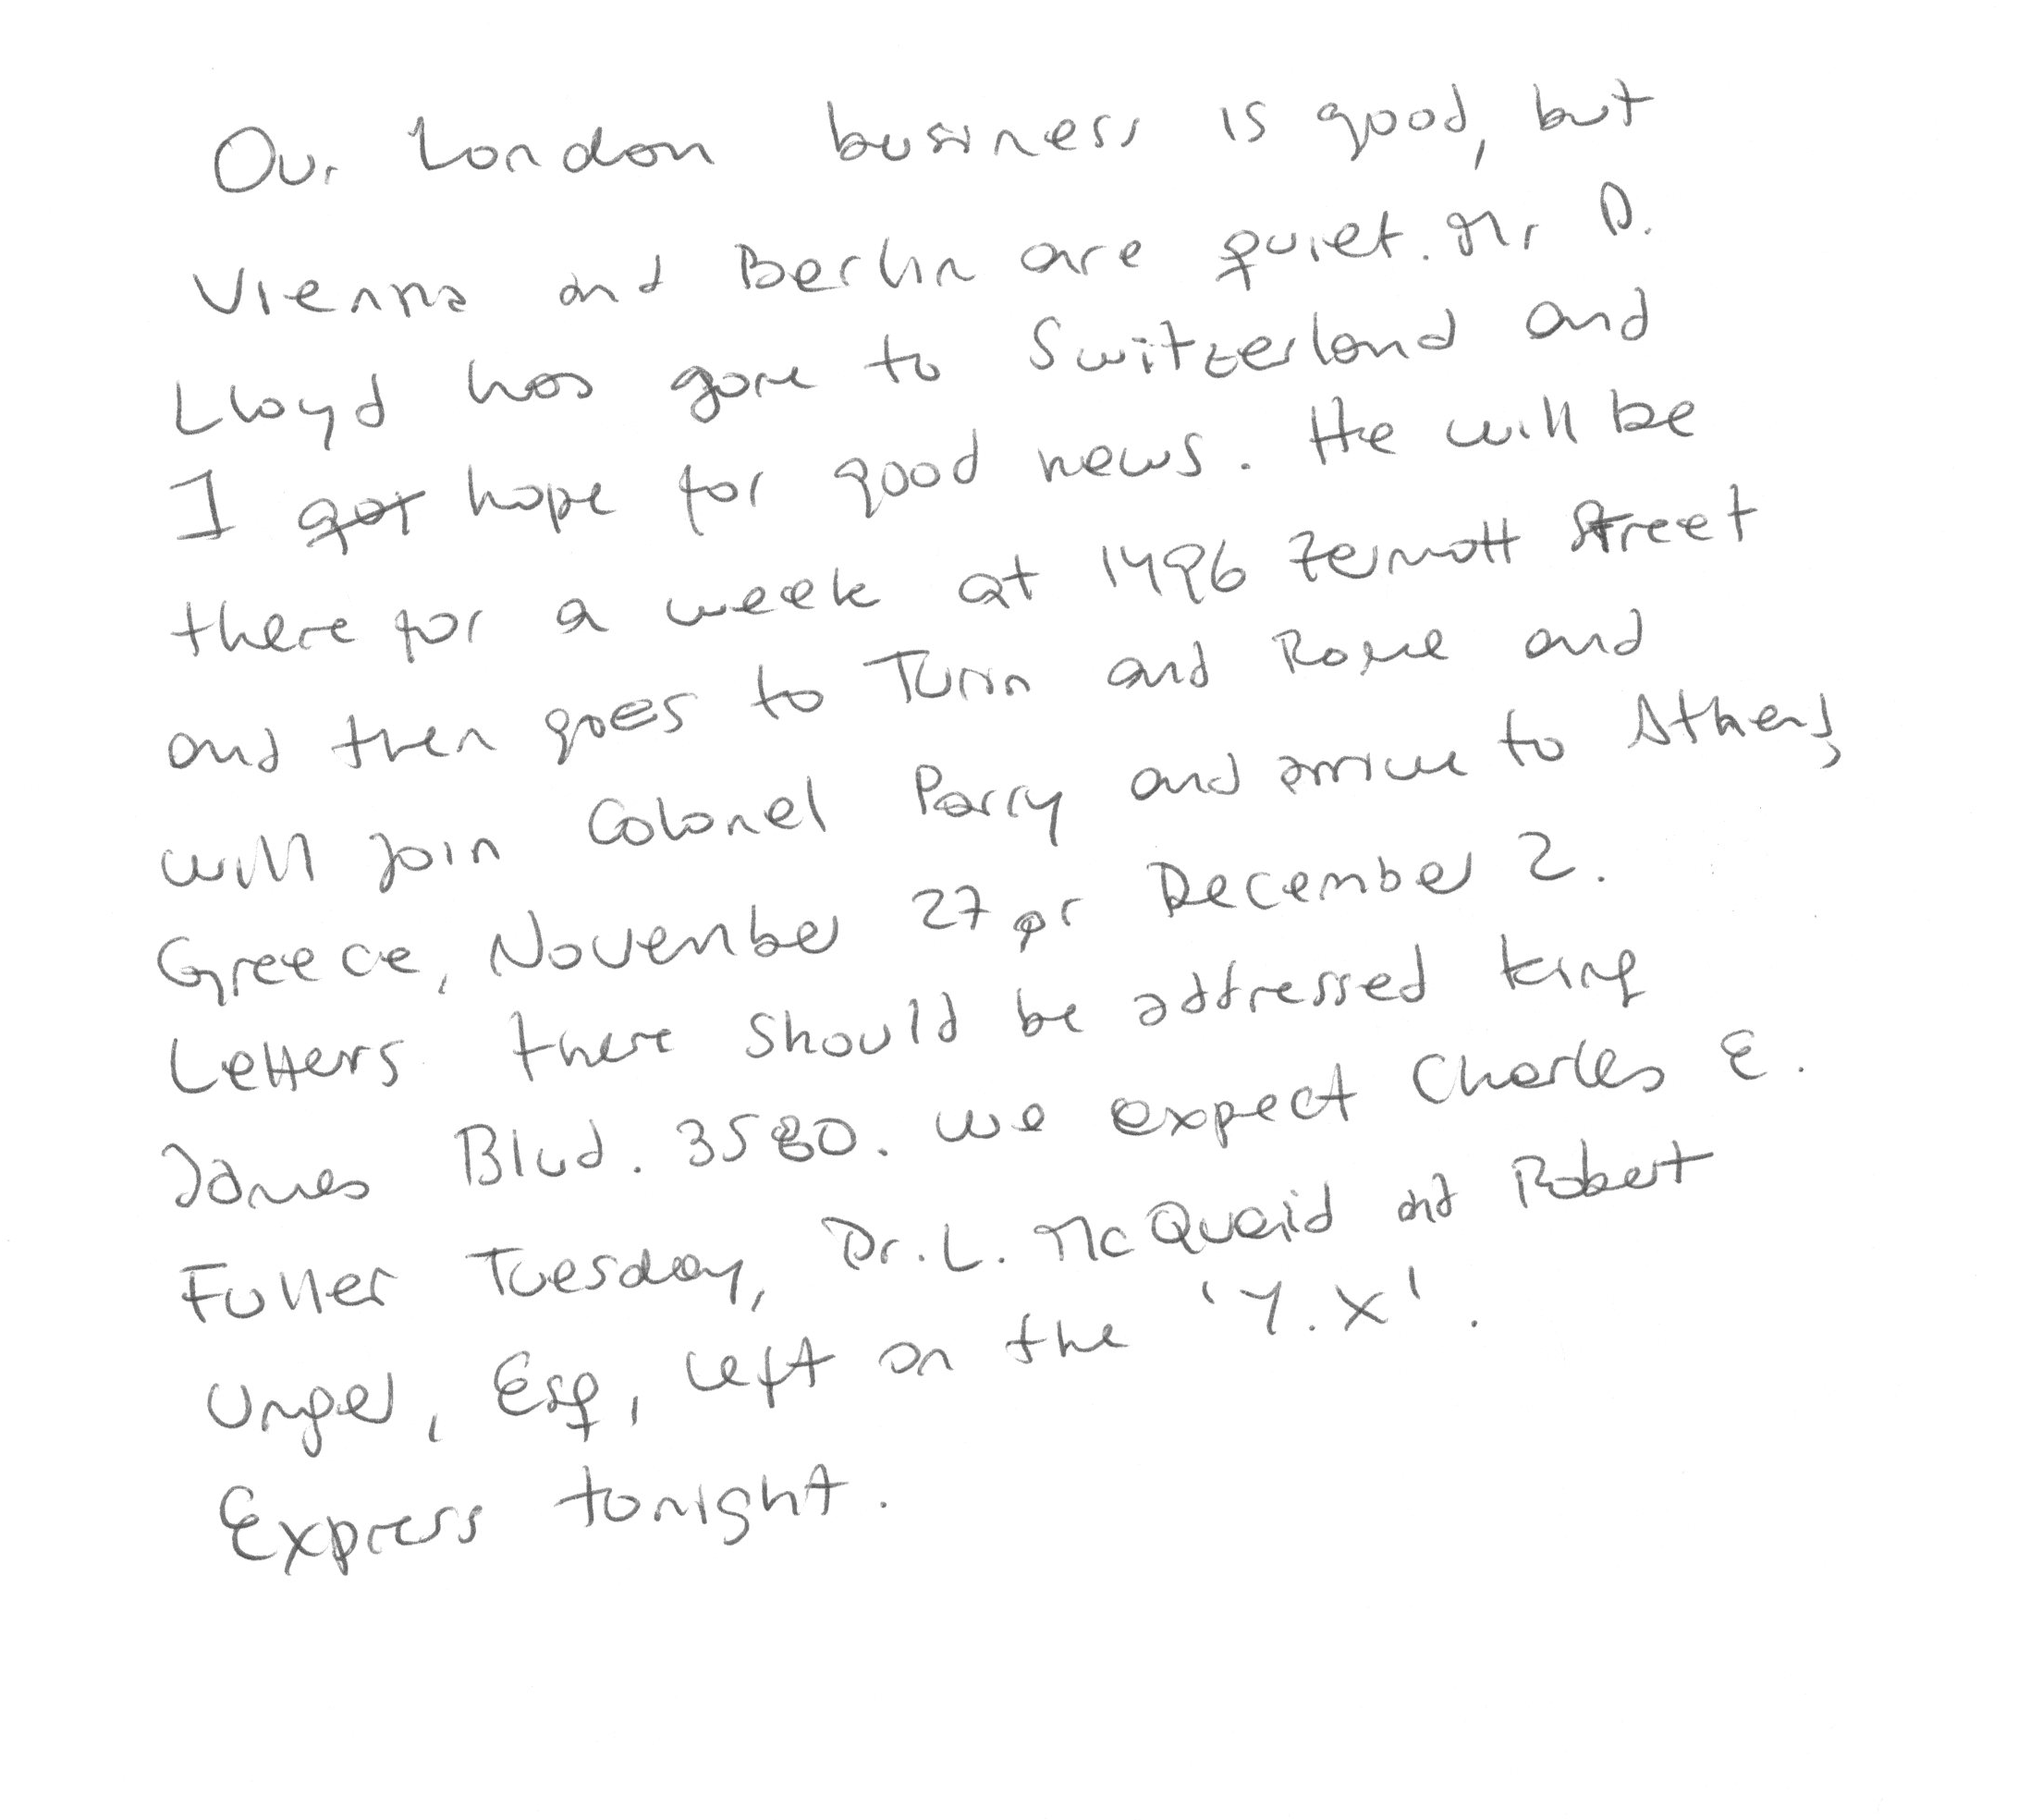 Our London business is good, but
Vienna and Berlin are quiet. Mr D.
Lloyd has gone to Switzerland and
I got hope for good news. He will be
there for a week at 1496 Zermott Street
and then goes to Turin and Rome and
will join Colonel Parry and arrive to Athens,
Greece, November 27 or December 2.
Letters there should be addressed King
James Blvd. 3580. We expect Charles E.
Fuller Tuesday, Dr. L. McQuaid and Robert
Unger, Esq, left on the 'Y.X'.
Express tonight.